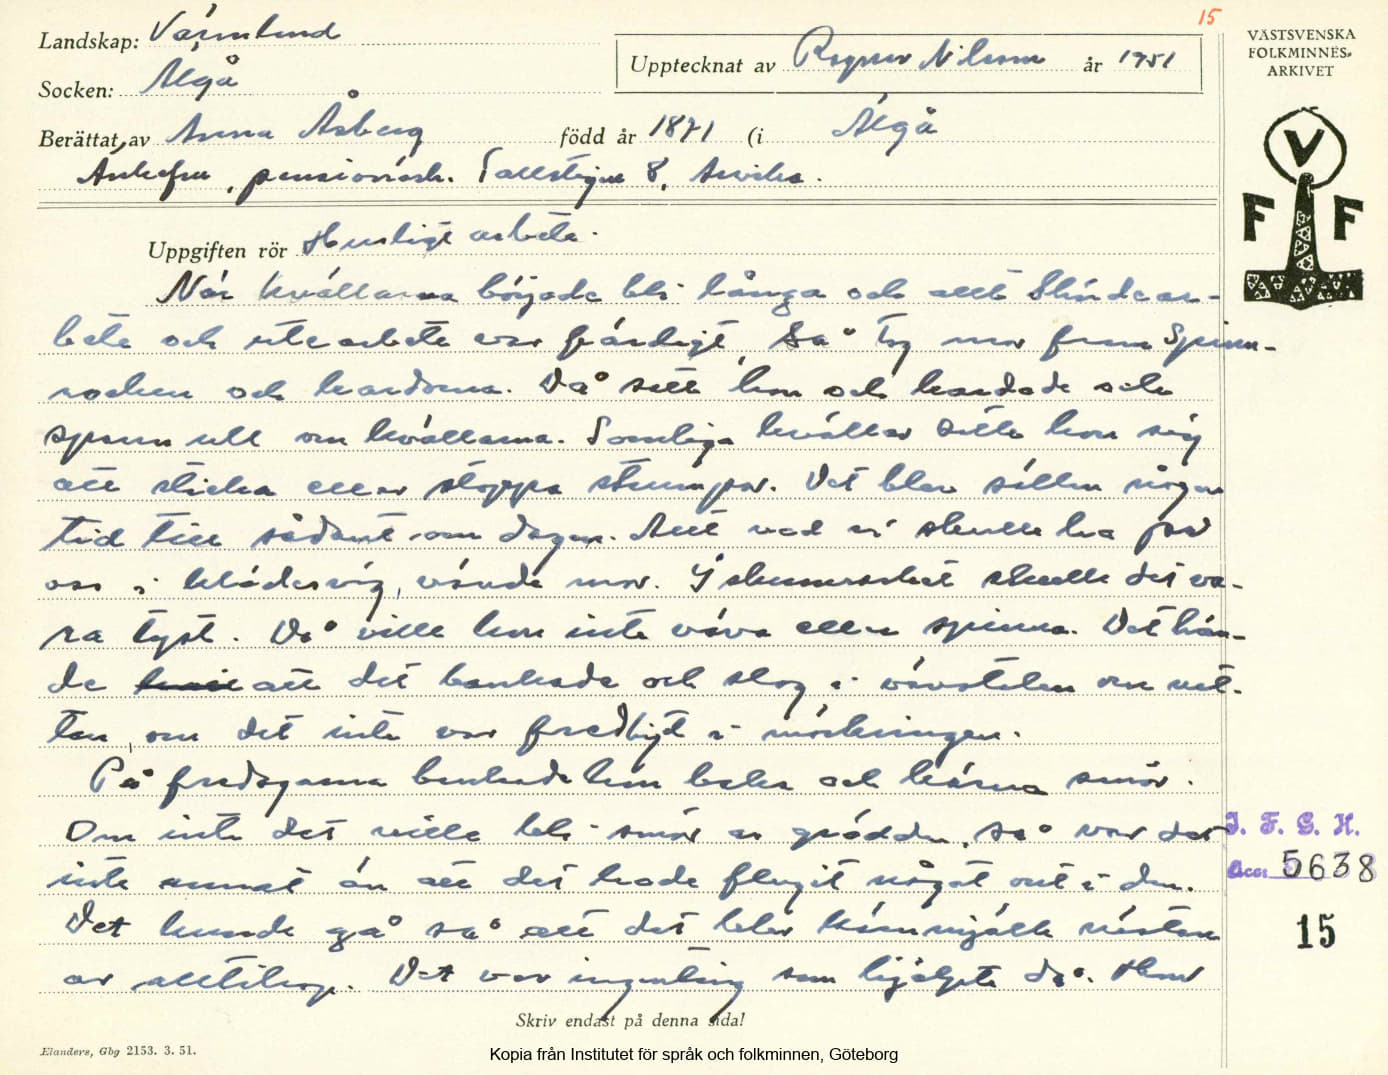 15
Landskap: Värmland
Upptecknat av Ragnar Nilsson år 1951
VÄSTSVENSKA
FOLKMINNES-
ARKIVET
Socken: Älgå
Berättat av Anna Åsberg född år 1871 (i Älgå
Änkefru, pensionärsh. Tallstigen 8, Arvika.
V
F F
Uppgiften rör Husligt arbete.
När kvällarna började bli långa och allt skördear-
bete och utearbete var färdigt, så tog mor fram Spinn-
rocken och kardorna. Då satt hon och kardade och
spann ull om kvällarna. Somliga kvällar satte hon sig
att sticka eller stoppa strumpor. Det blev sällan någon
tid till sådant om dagen. Allt vad vi skulle ha på
oss i klädesväg, vävde mor. I skumrasket skulle det va-
ra tyst. Då ville hon inte väva eller spinna. Det hän-
de att det bankade och slog i vävstolen om nat-
ten, om det inte var fredlyst i mörkningen.
På fredagarna brukade hon baka och kärna smör.
Om inte det ville bli smör av grädden, så var det
inte annat än att det hade flugit något ont i den.
Det kunde gå så att det blev kärnmjölk nästan
av alltihop. Det var ingenting som hjälpte då. Hon
J. F. G. H.
Acc: 5638
15
Skriv endast på denna sida!
Elanders, Gbg 2153. 3. 51.
Kopia från Institutet för språk och folkminnen, Göteborg